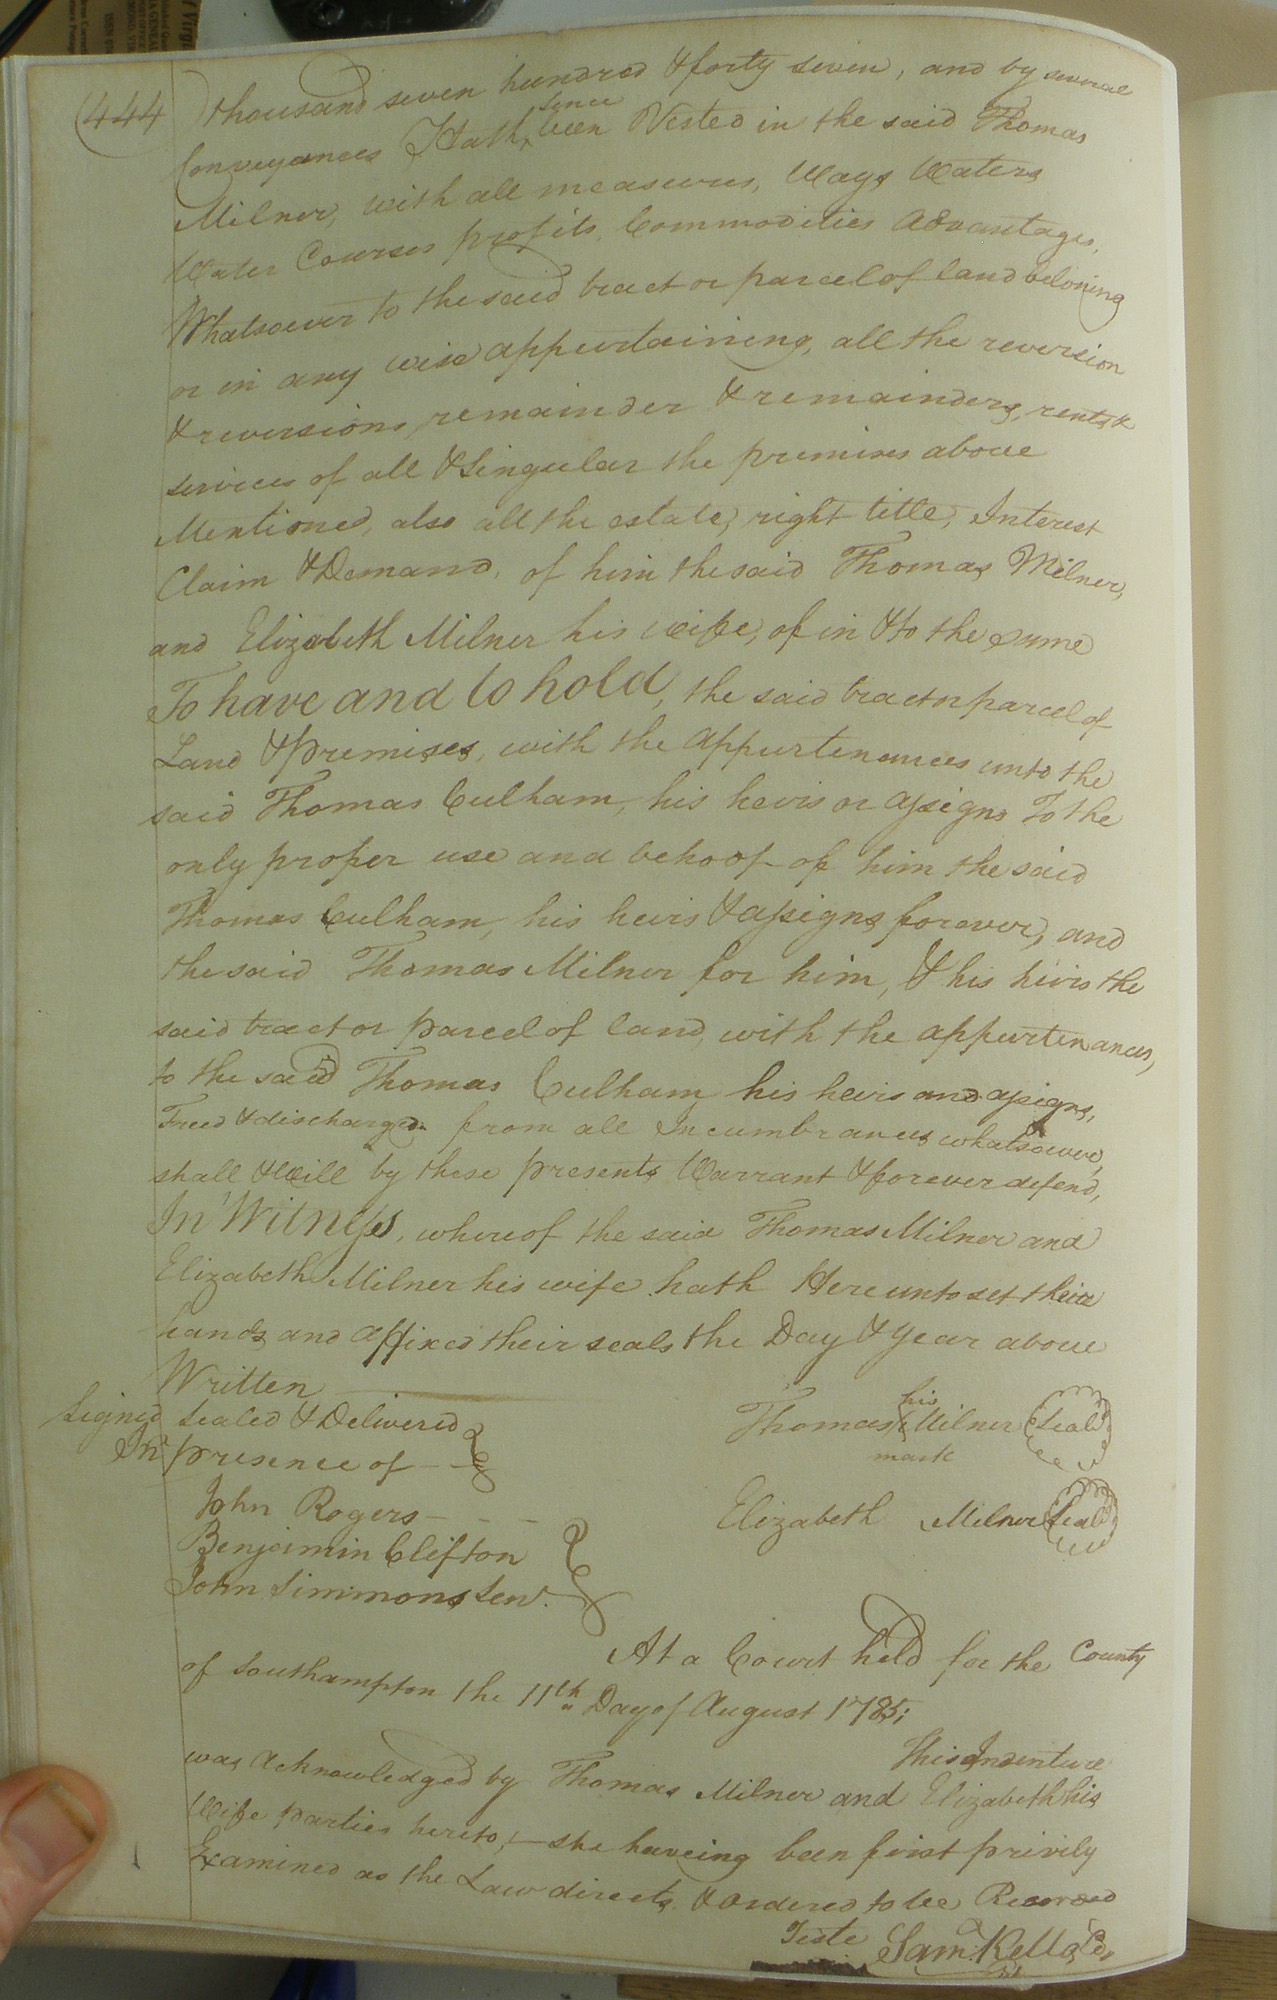 (444)
thousand seven hundred & forty seven, and by several
Conveyances Hath since been Vested in the said Thomas
Milner, with all measures, Ways Waters
Water Courses profits Commodities advantages,
Whatsoever to the said tract or parcel of land beloning
or in any wise appurtaining, all the reversion
& reversions, remainder & remainders, rents &
services of all & Singular the premises above
Mentioned, also all the estate, right title, Interest
Claim & Demand, of him the said Thomas Milner,
and Elizabeth Milner his wife, of in & to the same
To have and to hold, the said tract or parcel of
Land & premises, with the appurtenances unto the
said Thomas Culham, his heirs or assigns To the
only proper use and behoof of him the said
Thomas Culham, his heirs & assigns forever, and
the said Thomas Milner for him, & his heirs the
said tract or parcel of land, with the appurtenances,
to the said Thomas Culham his heirs and assigns,
Freed & discharged from all Incumbrances whatsoever,
shall & Will by these presents Warrant & forever defend,
In Witness, whereof the said Thomas Milner and
Elizabeth Milner his wife hath Hereunto set their
hands and affixed their seals the Day & year above
Written
Signed Sealed & Delivered
In presence of
John Rogers
Benjamin Clifton
John Simmons Senr.
Thomas his Milner Seal
mark
Elizabeth Milner Seal
At a Court held for the County
of Southampton the 11th Day of August 1785;
This Indenture
was Acknowledged by Thomas Milner and Elizabeth his
Wife parties hereto, she haveing been first privily
Examined as the Law directs & ordered to be Recorded
Teste Saml. Kello